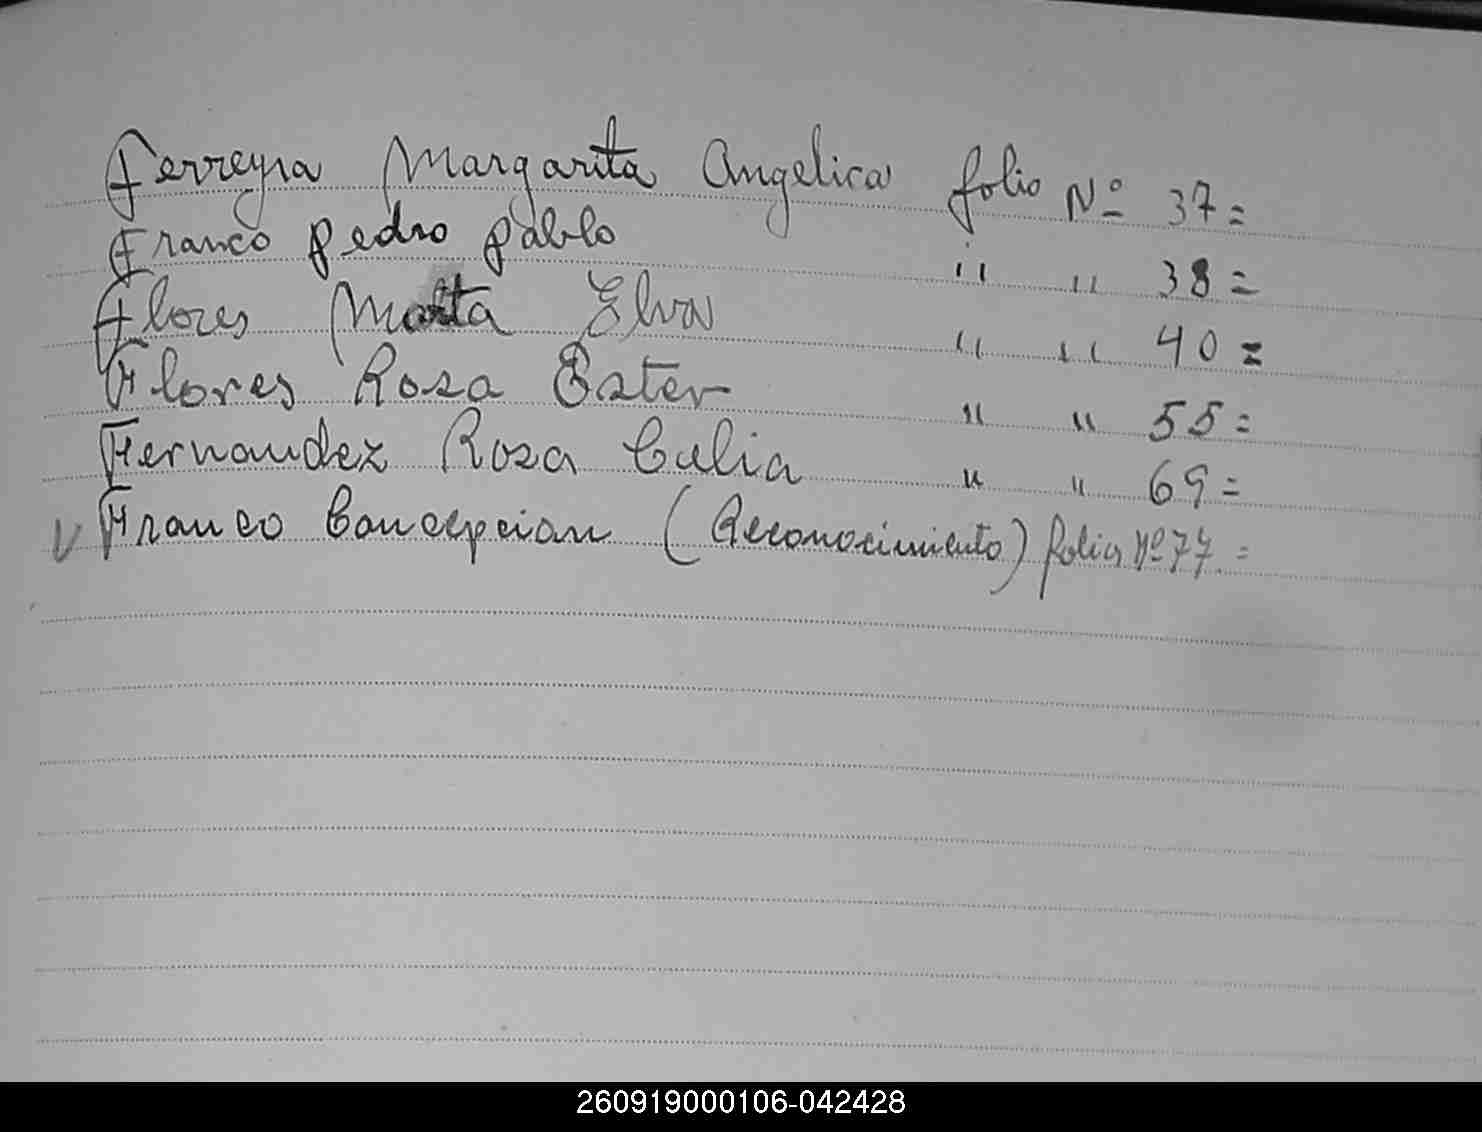 Ferreyra Margarita Angelica folio Nº 37=
Franco pedro pablo " " 38=
Flores Marta Elva " " 40=
Flores Rosa Ester " " 55=
Fernandez Rosa Celia " " 69=
Franco Concepcion (Reconocimiento) folio Nº 77=
260919000106-042428